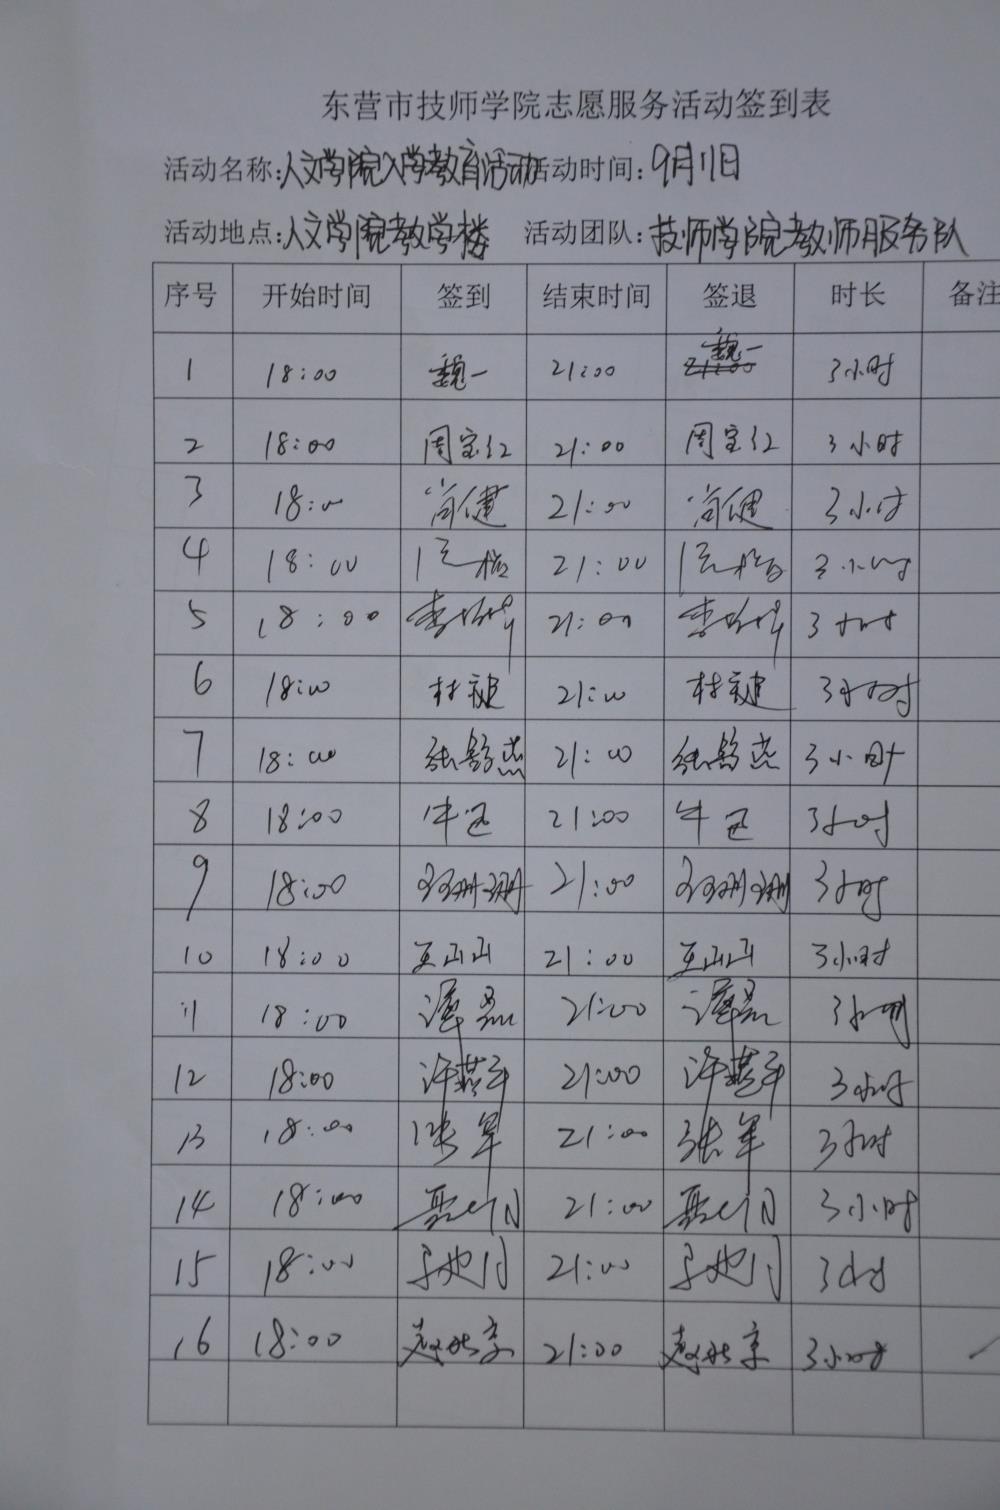 东营市技师学院志愿服务活动签到表
活动名称:人文学院入学教育活动 活动时间:9月11日
活动地点:人文学院教学楼 活动团队:技师学院教师服务队
序号 开始时间 签到 结束时间 签退 时长 备注
1 18:00 魏一 21:00 魏一 3小时
2 18:00 周宝红 21:00 周宝红 3小时
3 18:00 尚健 21:00 尚健 3小时
4 18:00 21:00 3小时
5 18:00 李 21:00 李 3小时
6 18:00 林 21:00 林 3小时
7 18:00 张舒燕 21:00 张舒燕 3小时
8 18:00 牛迅 21:00 牛迅 3小时
9 18:00 珊珊 21:00 珊珊 3小时
10 18:00 王山山 21:00 王山山 3小时
11 18:00 谭磊 21:00 谭磊 3小时
12 18:00 许燕平 21:00 许燕平 3小时
13 18:00 张军 21:00 张军 3小时
14 18:00 21:00 3小时
15 18:00 21:00 3小时
16 18:00 赵北京 21:00 赵北京 3小时